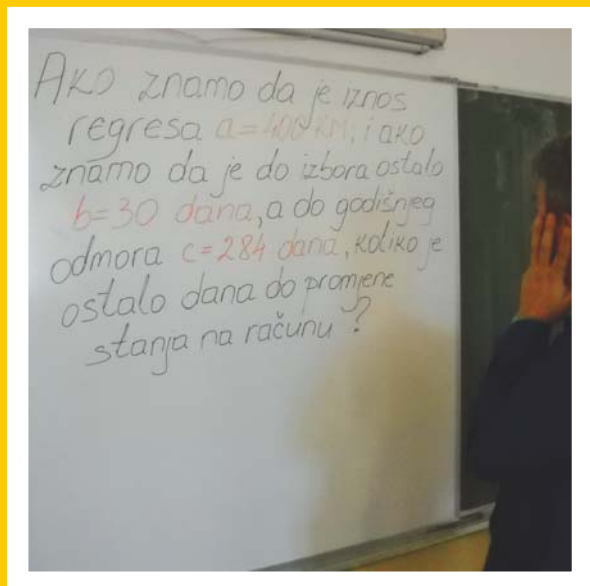 Ako znamo da je iznos
regresa a=400 KM, i ako
znamo da je do izbora ostalo
b=30 dana, a do godišnjeg
odmora c=284 dana, koliko je
ostalo dana do promjene
stanja na računu?